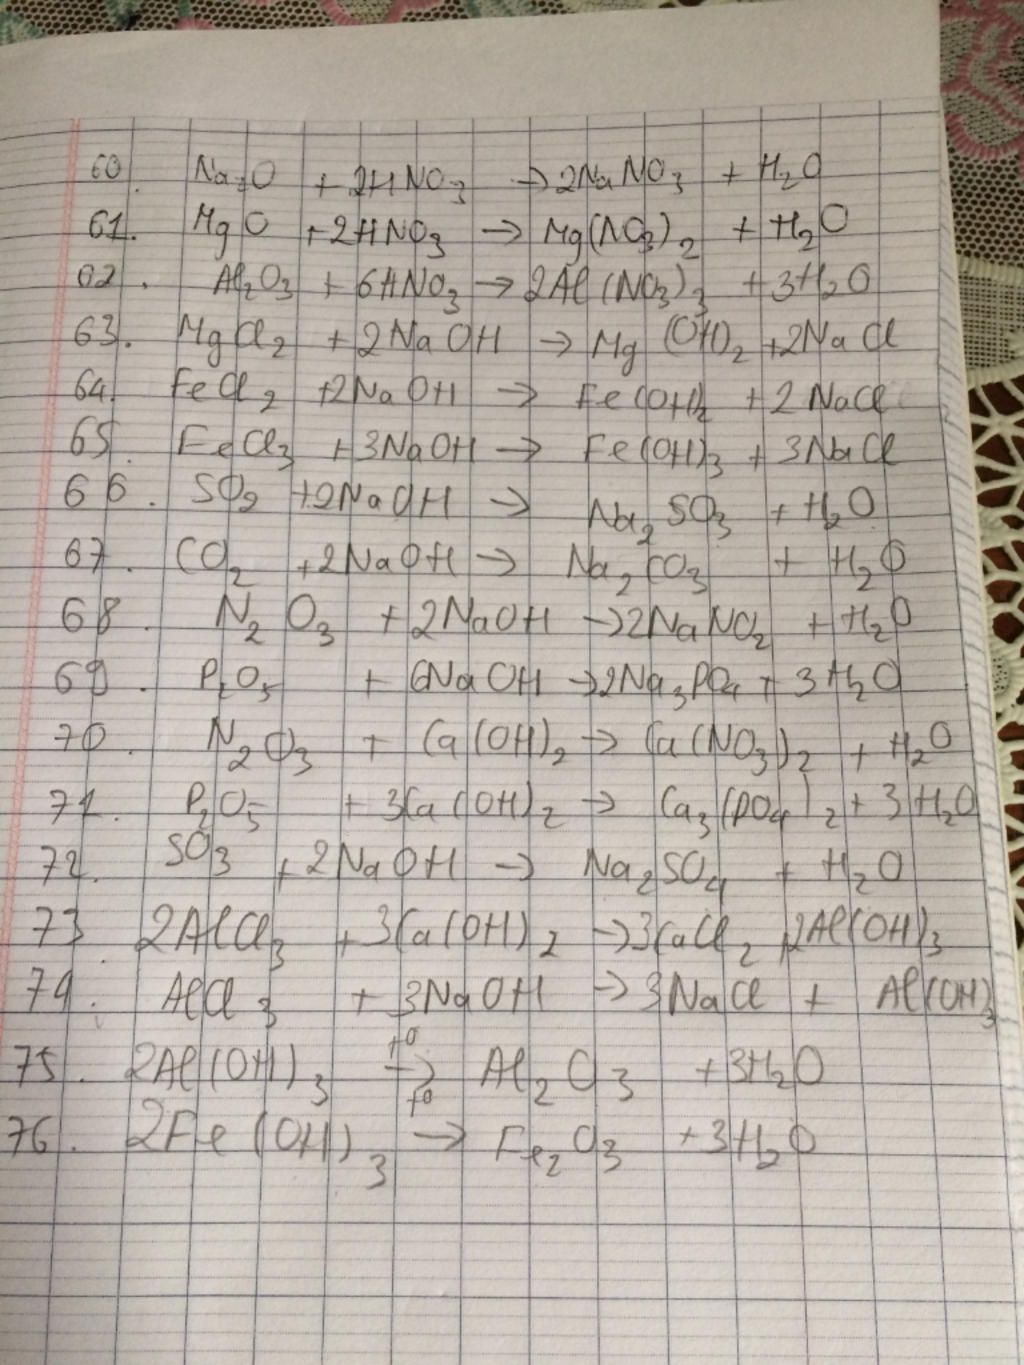 60. Na2O + 2HNO3 → 2NaNO3 + H2O
61. MgO + 2HNO3 → Mg(NO3)2 + H2O
62. Al2O3 + 6HNO3 → 2Al(NO3)3 + 3H2O
63. MgCl2 + 2NaOH → Mg(OH)2 + 2NaCl
64. FeCl2 + 2NaOH → Fe(OH)2 + 2NaCl
65. FeCl3 + 3NaOH → Fe(OH)3 + 3NaCl
66. SO2 + 2NaOH → Na2SO3 + H2O
67. CO2 + 2NaOH → Na2CO3 + H2O
68. N2O3 + 2NaOH → 2NaNO2 + H2O
69. P2O5 + 6NaOH → 2Na3PO4 + 3H2O
70. N2O3 + Ca(OH)2 → Ca(NO3)2 + H2O
71. P2O5 + 3Ca(OH)2 → Ca3(PO4)2 + 3H2O
72. SO3 + 2NaOH → Na2SO4 + H2O
73 2AlCl3 + 3Ca(OH)2 → 3CaCl2 + 2Al(OH)3
74. AlCl3 + 3NaOH → 3NaCl + Al(OH)3
75. 2Al(OH)3 t° → Al2O3 + 3H2O
76. 2Fe(OH)3 t° → Fe2O3 + 3H2O